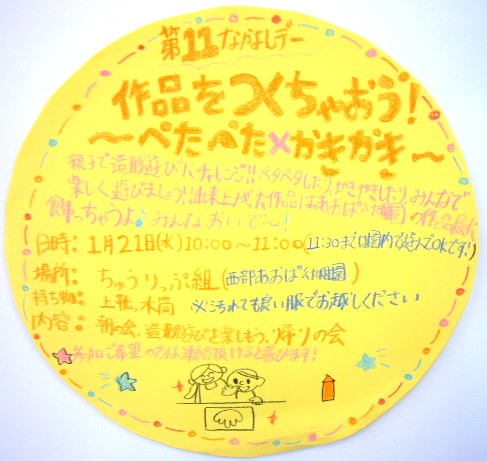 第11なかよしデー
作品をつくちゃおう!
～ぺたぺた×かきかき～
親子で造形遊びにチャレンジ!!ペタペタしたり、かきかきしたり、みんなで
楽しく遊びましょう!!出来上がった作品はあおば幼稚園の作品展に
飾っちゃうよ♪みんなおいで～!
日時：1月21日(水)10:00～11:00(11:30まで園内で遊んでOKです!)
場所：ちゅうりっぷ組(西部あおば幼稚園)
持ち物：上靴、水筒 ※汚れても良い服でお越しください
内容：朝の会、造形遊びを楽しもう、帰りの会
参加ご希望の方は連絡頂けると喜びます!